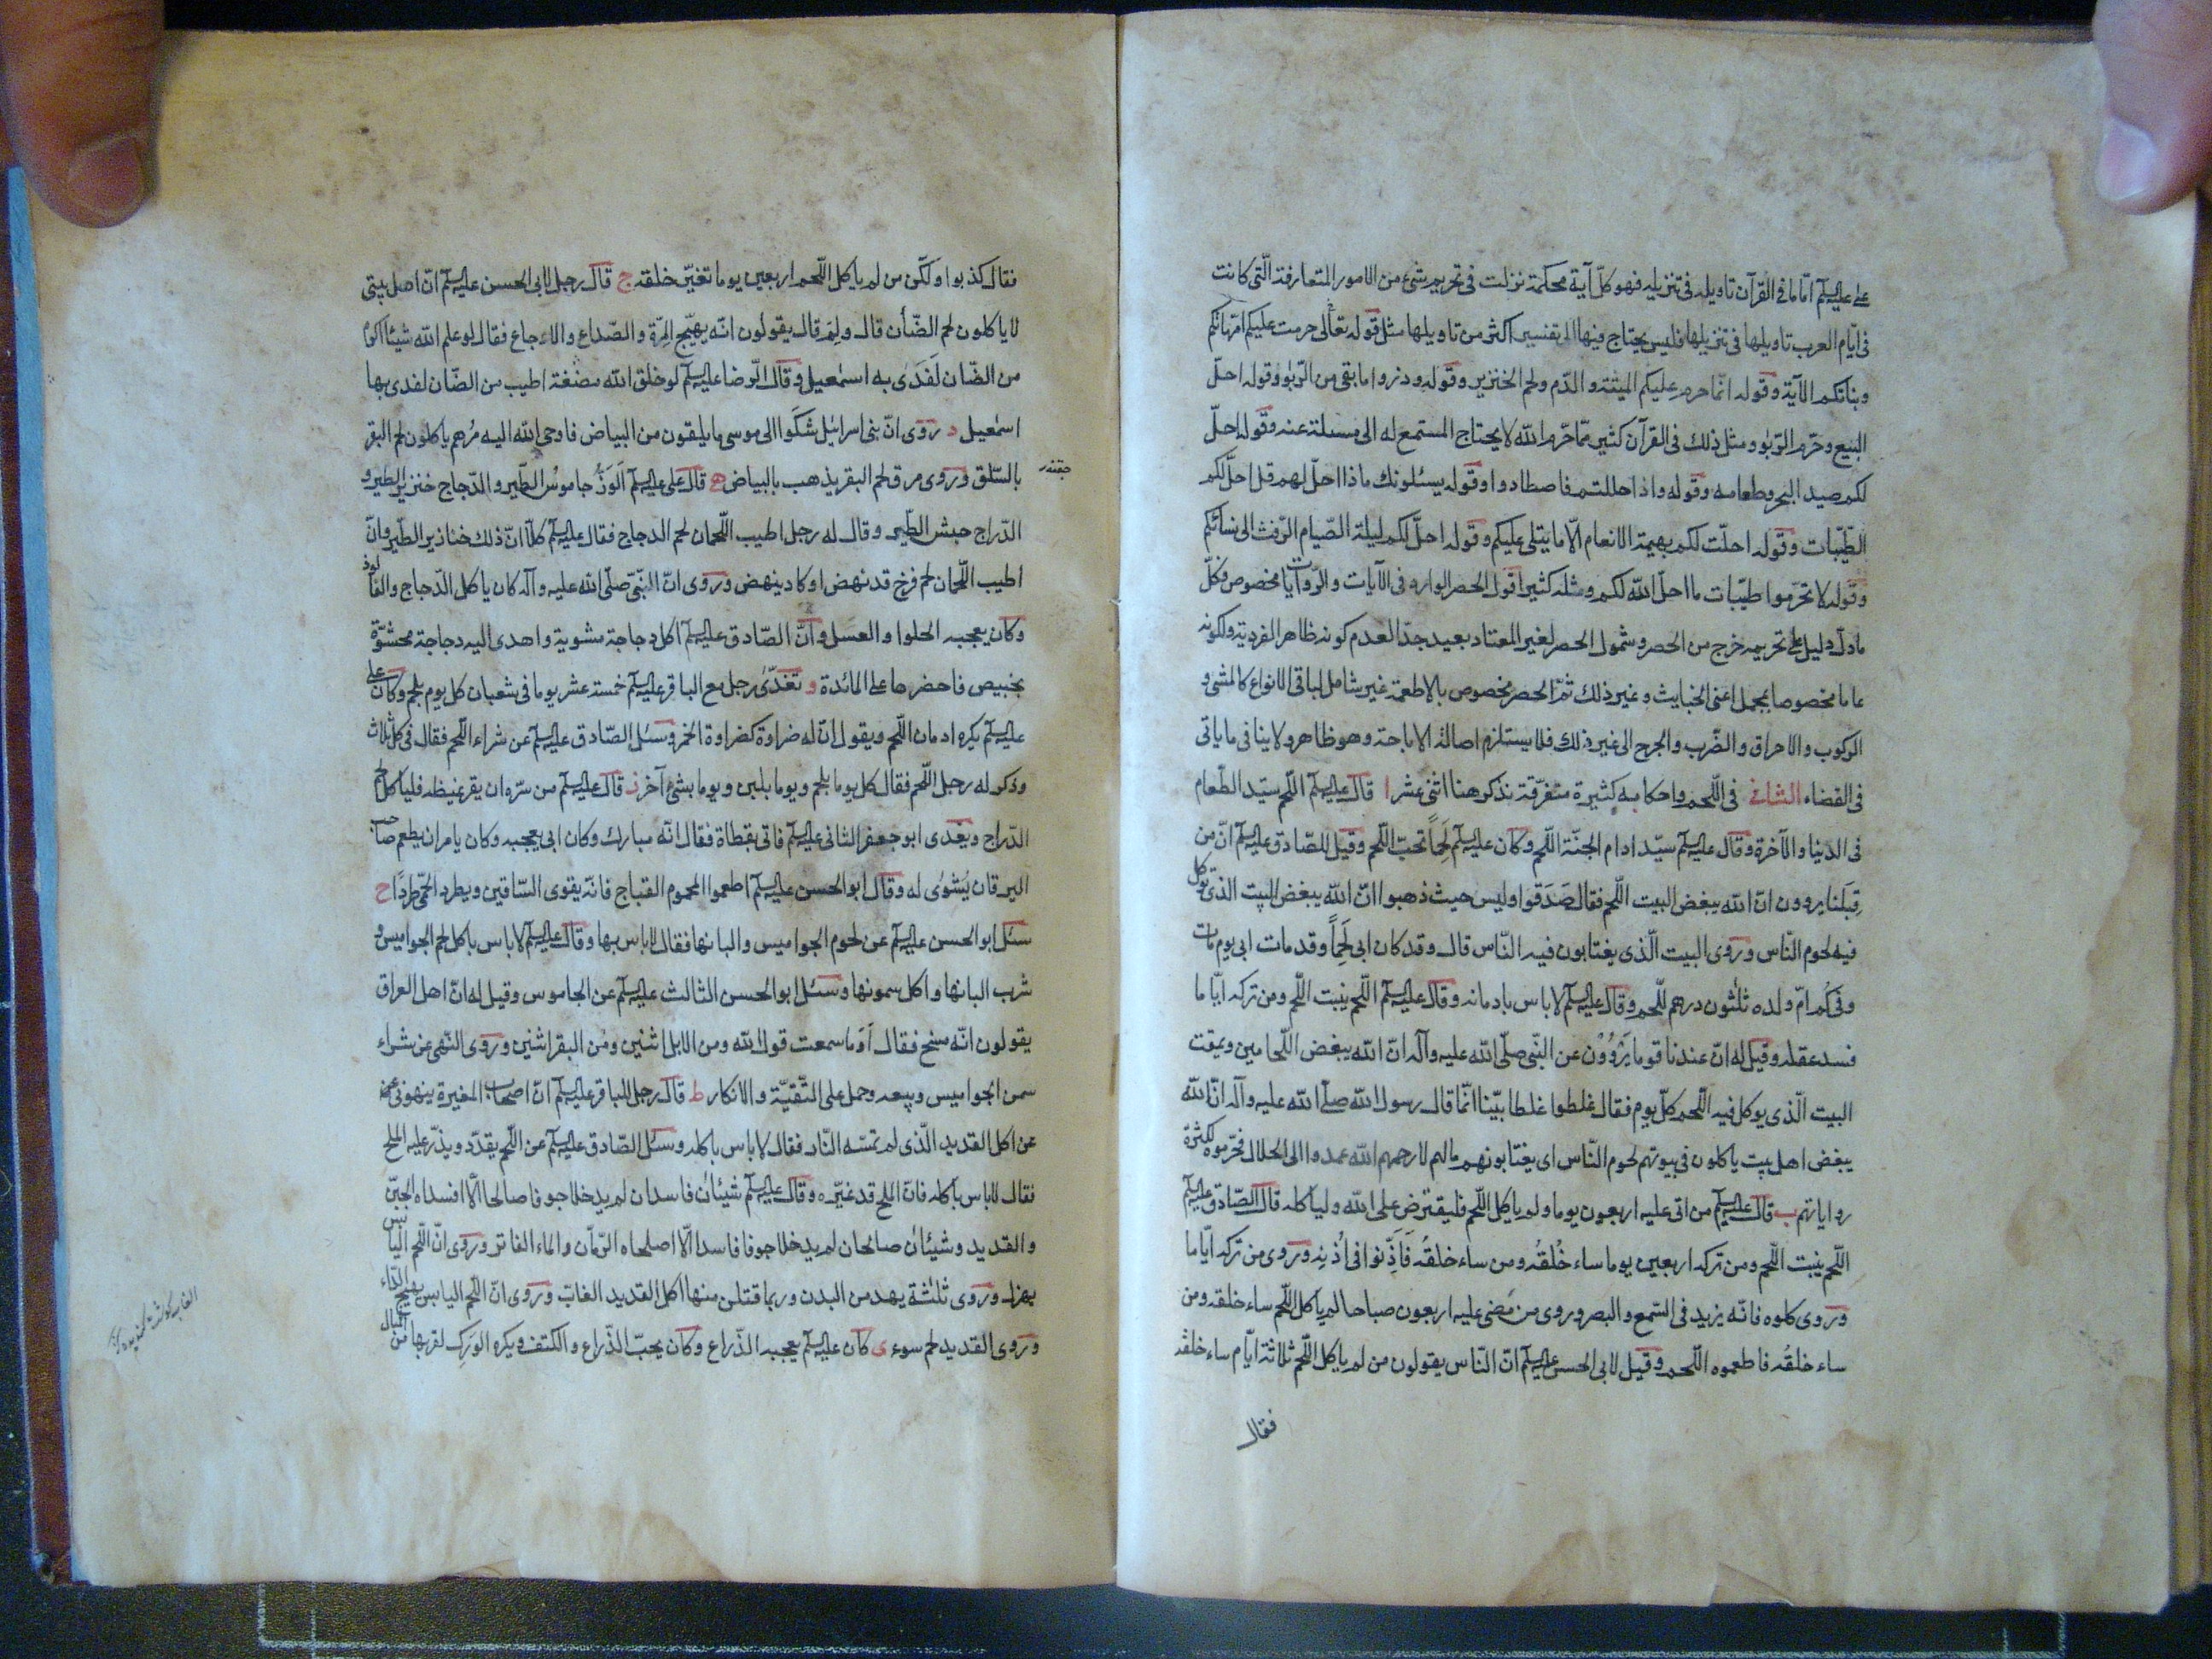 على عليه السلم امّا ما فى القرآن تاويله فى تنزيله فهو كلّ آية محكمة نزلت فى تحريم شئ من الامور المتعارفة الّتى كانت
فى ايّام العرب تاويلها فى تنزيلها فليس يحتاج فيها الى تفسير اكثر من تاويلها مثل قوله تعالى حرمت عليكم امّهاتكم
وبناتكم الآية وقوله انّما حرم عليكم الميتة والدّم ولحم الخنزير وقوله وذروا ما بقى من الرّبوٰ وقوله احلّ
البيع وحرّم الرّبوٰ ومثل ذلك فى القرآن كثير ممّا حرّم الله لا يحتاج المستمع له الى مسئلة عنه وقوله احلّ
لكم صيد البحر وطعامه وقوله واذا حللتم فاصطادوا وقوله يسئلونك ماذا احلّ لهم قل احلّ لكم
الطّيّبات وقوله احلّت لكم بهيمة الانعام الّا ما يتلى عليكم وقوله احلّ لكم ليلة الصّيام الرّفث الى نسائكم
وقوله لا تحرّموا طيّبات ما احلّ الله لكم ومثله كثير اقول الحصر الوارد فى الآيات والرّوايات مخصوص فكلّ
ما دلّ دليل على تحريمه خرج من الحصر وشمول الحصر لغير المعتاد بعيد جدّا لعدم كونه ظاهر الفردية ولكونه
عاما مخصوصا بمجمل اعنى الخبايث وغير ذلك ثمّ الحصر مخصوص بالاطعمة غير شامل لباقى الانواع كالمشى و
الركوب والاحراق والضّرب والجرح الى غير ذلك فلا يستلزم اصالة الاباحة وهو ظاهر ولا ينافى ما ياتى
فى القضاء الثانى فى اللّحم واحكامه كثيرة متفرّقة نذكر هنا اثنى عشر ا قال عليه السلم اللّحم سيّد الطّعام
فى الدنيا والآخرة وقال عليه السلم سيّد ادام الجنّة اللّحم وكان عليه السلم لَحِماً تحبّ اللّحم وقيل للصّادق عليه السلم انّ من
قِبَلنا يروون انّ الله يبغض البيت اللّحم فقال صَدَقوا وليس حيث ذهبوا انّ الله يبغض البيت الذى توكل
فيه لحوم النّاس وروى البيت الّذى يغتابون فيه النّاس قال وقد كان ابى لَحِماً وقد مات ابى يوم مات
وفى كُم امّ ولده ثلٰثون درهم للّحم وقال عليه السلم لا باس بادمانه وقال عليه السلم اللّحم ينبت اللّحم ومن تركه ايّاما
فسد عقله وقيل له انّ عندنا قوما يَرْوُوْن عن النّبى صلّى الله عليه وآله انّ الله يبغض اللّحامين ويمقت
البيت الّذى يوكل فيه اللّحم كلّ يوم فقال غلطوا غلطا بيّنا انّما قال رسول الله صلّى الله عليه وآله انّ الله
يبغض اهل بيت ياكلون فى بيوتهم لحوم النّاس اى يغتابونهم مالهم لا رحمهم الله عمدوا الى الحلال فحرّموه لكثرة
رواياتهم ب قال عليه السلم من اتى عليه اربعون يوما ولم ياكل اللّحم فليقترض على الله ولياكله قال الصّادق عليه السلم
اللّحم ينبت اللّحم ومن تركه اربعين يوما ساء خُلقُه ومن ساء خلقُه فَاَذِّنوا فى اُذنِه وروى من تركه ايّاما
وروى كلوه فانّه يزيد فى السّمع والبصر وروى من مَضى عليه اربعون صباحا لم ياكل اللّحم ساء خلقه ومن
ساء خلقُه فاطعموه اللّحم وقيل لابى الحسن عليه السلم انّ النّاس يقولون من لم ياكل اللّحم ثلاثة ايّام ساء خلقه
فقال
فقال كذبوا ولكّن من لم ياكل اللّحم اربعين يوما تغيّر خلقه ج قال رجل لابى الحسن عليه السلم انّ اهل بيتى
لا ياكلون لحم الضّأن قال ولِمَ قال يقولون انّه يهيّج المِرّة والصّداع والاوجاع فقال لو علم الله شيئا اكرم
من الضّان لَفدَى به اسمٰعيل وقال الرّضا عليه السلم لو خلق الله مضغة اطيب من الضّان لفدى بها
اسمٰعيل د روى انّ بنى اسرائيل شَكَوا الى موسى ما يلقون من البياض فاوحى الله اليه مُرهم ياكلون لحم البقر
بالسّلق وروى مرق لحم البقر يذهب بالبياض ه قال على عليه السلم اَلوَزُّ جاموسُ الطّير والدّجاج خنزير الطير و
الدّراج حبش الطّير وقال له رجل اطيب اللّحمان لحم الدجاج فقال عليه السلم كلّا انّ ذلك خنازير الطّير وانّ
اطيب اللّحمان لحم فرخ قد نهض او كاد ينهض وروى انّ النّبىّ صلّى الله عليه وآله كان ياكل الدّجاج والفالوذ
وكان يعجبه الحلوا والعسل وانّ الصّادق عليه السلم اكل دجاجة مشوية واهدى اليه دجاجة محشوّة
بخبيص فاحضرها على المائدة و تغدّىٰ رجل مع الباقر عليه السلم خمسة عشر يوما فى شعبان كل يوم بلحم وكان على
عليه السلم يكره ادمان اللّحم ويقول انّ له ضراوة كضراوة الخمر وسئل الصّادق عليه السلم عن شراء اللّحم فقال فى كلّ ثلاث
وذكر له رجل اللّحم فقال كل يوما بلحم ويوما بلبن ويوما بشئ آخر ز قال عليه السلم من سرّه ان يقر غيظه فلياكل لحم
الدّراج وتغدى ابو جعفر الثانى عليه السلم فاتى بقطاة فقال انّه مبارك وكان ابى يعجبه وكان يامر ان يطعم صاحب
اليرقان يُشوٰى له وقال ابو الحسن عليه السلم اطعموا المحموم القباج فانّه يقوى السّاقين ويطرد الحمّى طردًا ح
سئل ابو الحسن عليه السلم عن لحوم الجواميس والبانها فقال لا باس بها وقال عليه السلم لا باس باكل لحم الجواميس و
شرب البانها واكل سمونها وسئل ابو الحسن الثالث عليه السلم عن الجاموس وقيل له انّ اهل العراق
يقولون انّه مسخ فقال اَوَما سمعت قول الله ومن الابل اثنين ومن البقر اثنين وروى النّهى عن شراء
سمن الجواميس وبيعه وحمل على التّقيّة والانكار ط قال رجل للباقر عليه السلم انّ اصحاب المغيرة ينهونى
عن اكل القديد الّذى لم تمسّه النّار فقال لا باس باكله وسئل الصّادق عليه السلم عن اللّحم يقدّد ويذرّ عليه الملح
فقال لا باس باكله فانّ الملح قد غيّره وقال عليه السلم شيئان فاسدان لم يدخلا جوفا صالحا الّا افسداه الجبن
والقديد وشيئان صالحان لم يدخلا جوفا فاسدا الّا اصلحاه الرّمّان والماء الفاتر وروى انّ اللّحم اليابس
يهزل وروى ثلٰثة يهدمن البدن وربما قتلن منها اكل القديد الغابّ وروى انّ اللّحم اليابس يهيّج الدّاء
وروى القديد لحم سوء ى كان عليه السلم يعجبه الذّراع وكان يحبّ الذّراع والكتف ويكره الوَرِك لقربها من المبال